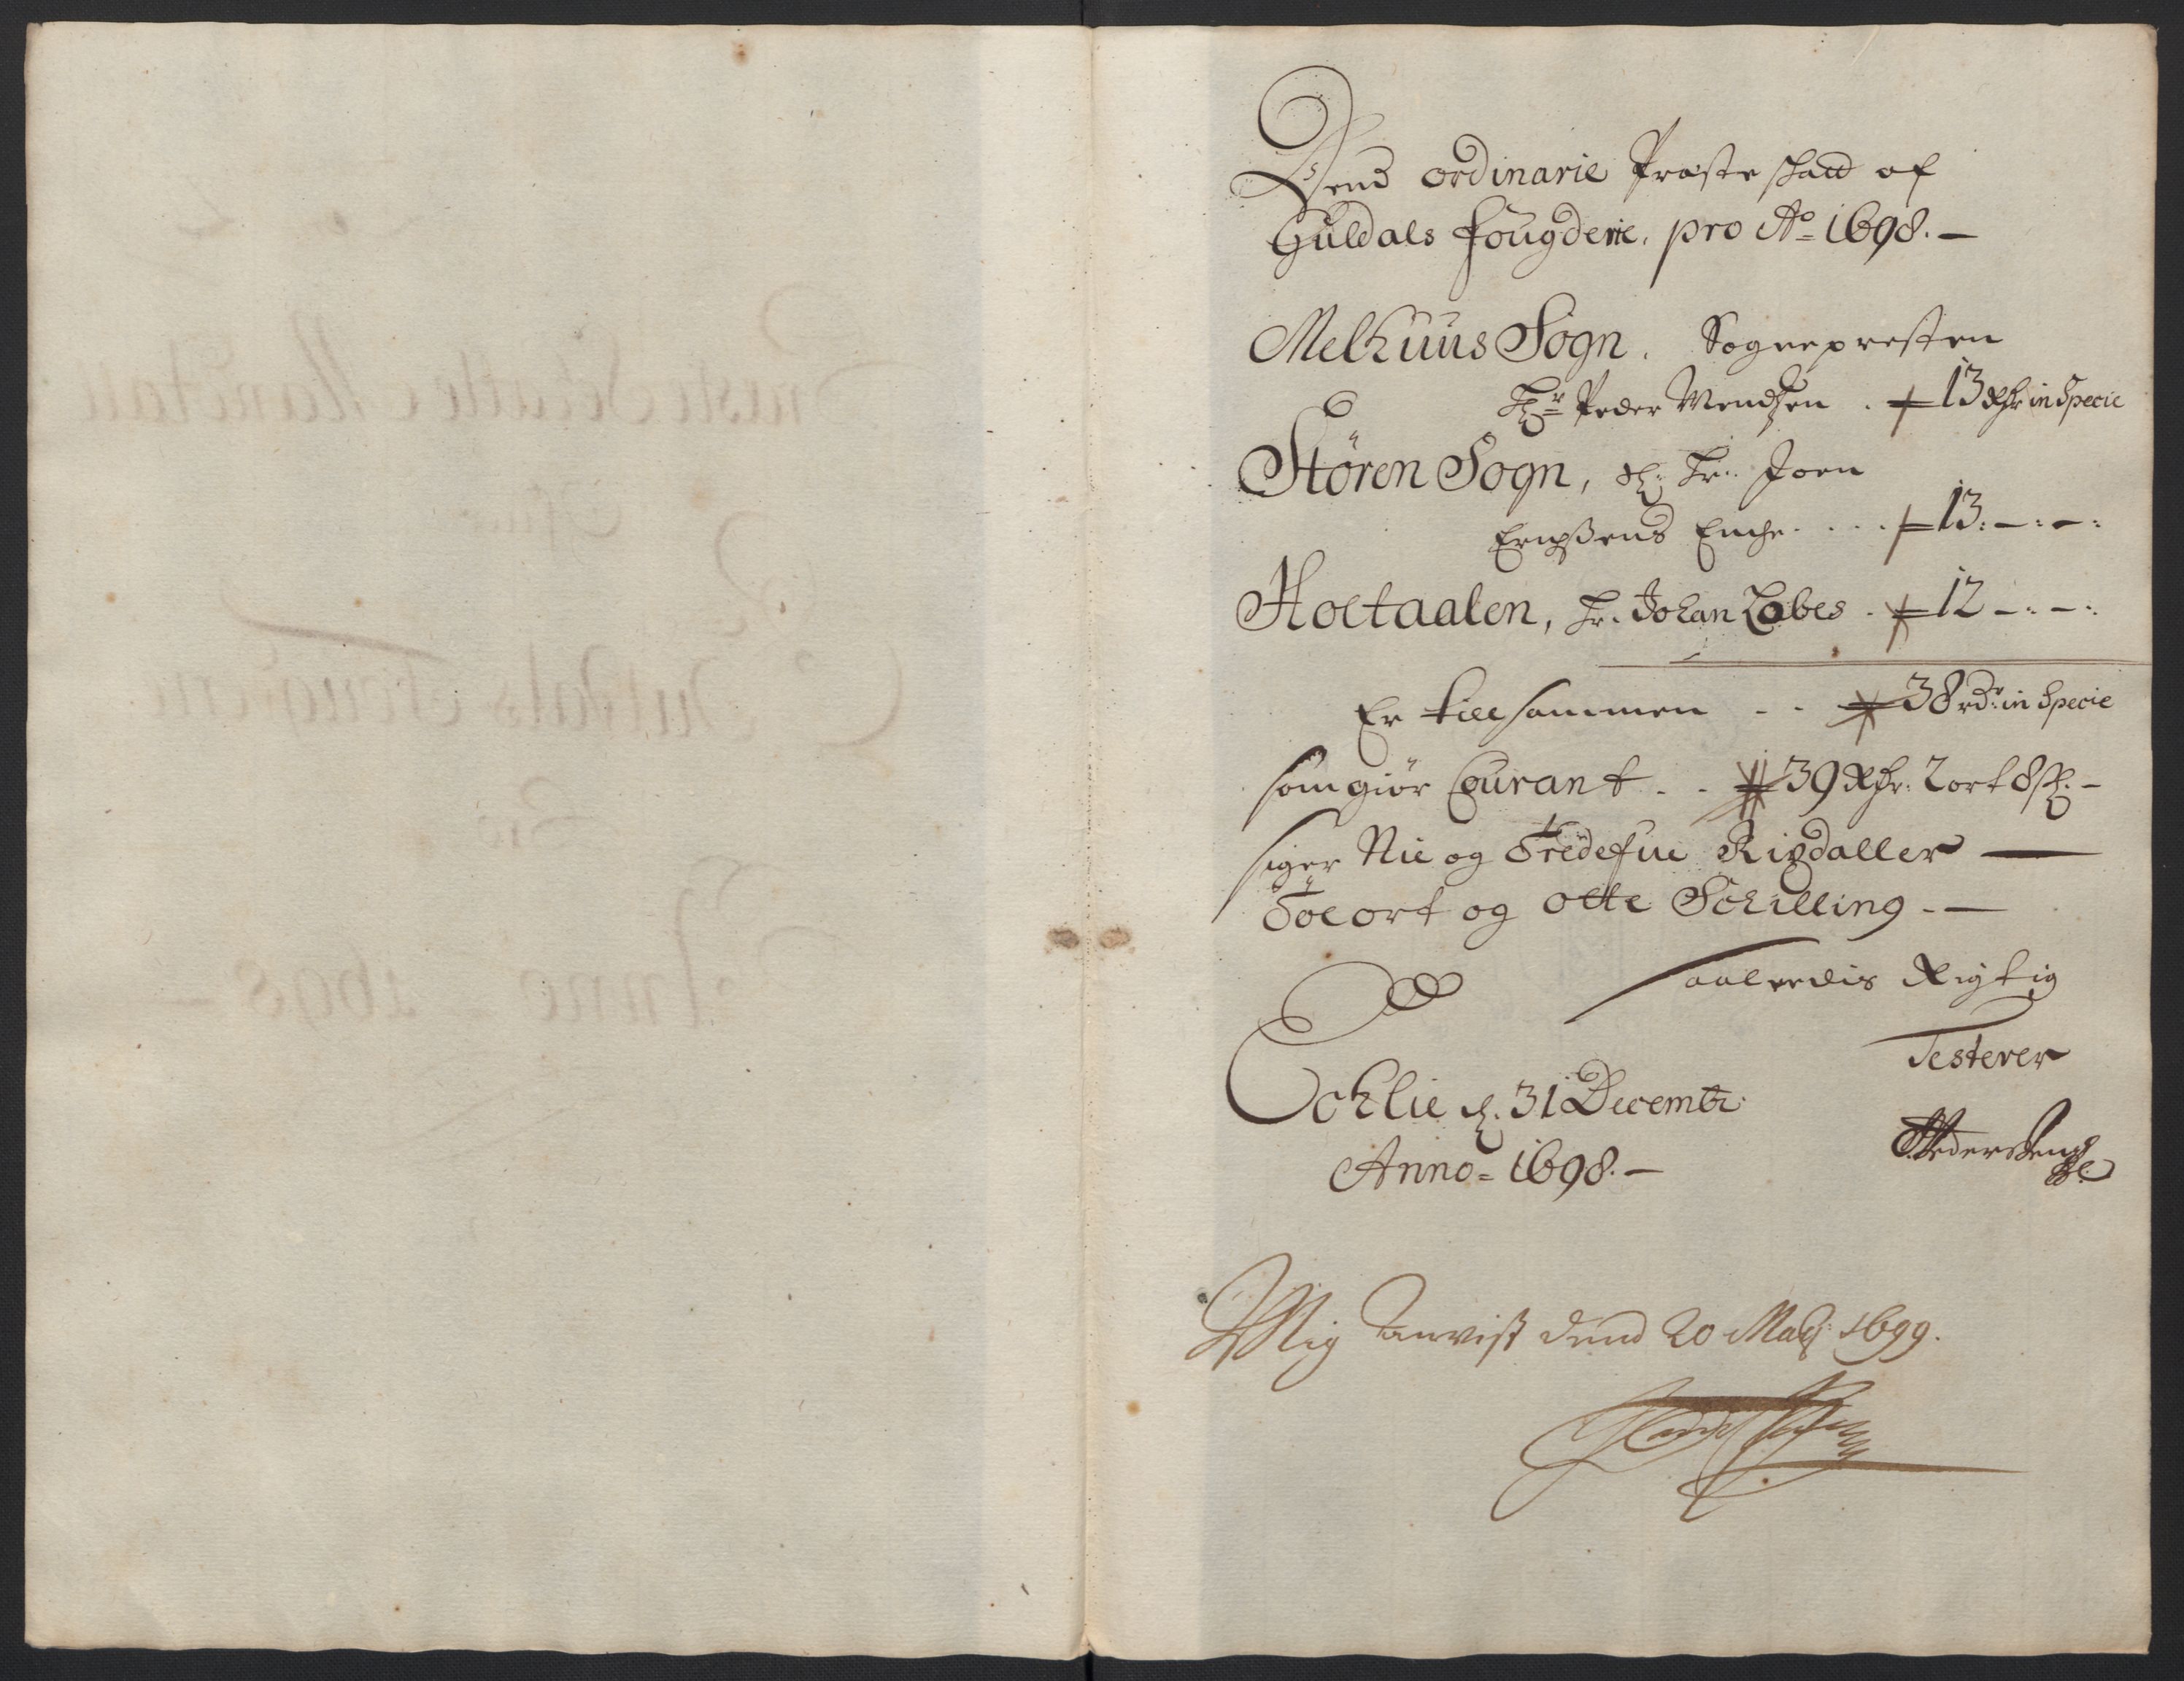 Dend ordinarie Præste skatt af
Guldals fougderie, pro Ao 1698.
Melhuus Sogn. Sognepresten
Hr Peder Mendtzen . 13 Rdr in Specie
Støren Sogn, Sl. Hr. Joen
Erichsens Enche . . . . 13: – : – :
Holtaalen, Hr. Johan Lobes . 12 – : – :
Er till sammen . . 38 rdr in Specie
som giør Courant . . 39 Rdr: 2 ort 8 s: –
siger Nie og Tredefue Rigsdaller
Toe ort og Otte Schilling . –
saaledis Rigtig
Testerer
d. 31 Decembr:
Anno = 1698. –
Mig anvist dend 20 Maij 1699.